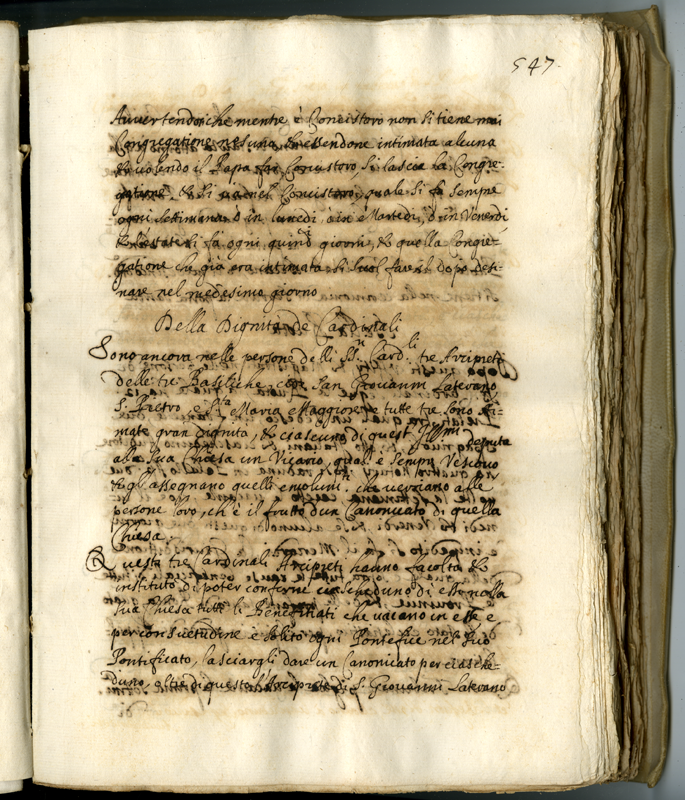 547.
Avvertendosi che mentre è Concistoro non si tiene mai
Congregatione nesuna, et essendone intimata alcuna
et volendo il Papa far Concistoro si lascia la Congre-
gatione, et si và nel Concistoro, quale si fa sempre
ogni settimana ò in lunedi ò in Martedi, ò in Venerdi
et l'estate si fa ogni quindici giorni, et quella Congre-
gatione che già era intimata si suol fare il dopo desi-
nare nel medesimo giorno
Della Dignita de Cardinali
Sono ancora nelle persone delli SS.ri Card.li tre Arcipreti
delle tre Basiliche, cioè San Giovanni Laterano
S. Pietro e S.ta Maria Maggiore, e tutte tre sono sti-
mate gran dignita, et ciascuno di questi Ill.mi deputa
alla sua Chiesa un Vicario, qual è sempre Vescovo
et gli assegnano quelli emolum.ti che verriano alle
persone loro, ch'è il frutto d'un Canonicato di quella
Chiesa.
Questi tre Cardinali Arcipreti hanno facolta et
instituto di poter conferire ciascheduno di essi nella
sua Chiesa tutti li Beneficiati che vacano in esse e
per consuetudine e solito ogni Pontefice nel suo
Pontificato, lasciargli dare un Canonicato per ciasche-
duno, oltre di questo l'Arciprete di S. Giovanni Laterano